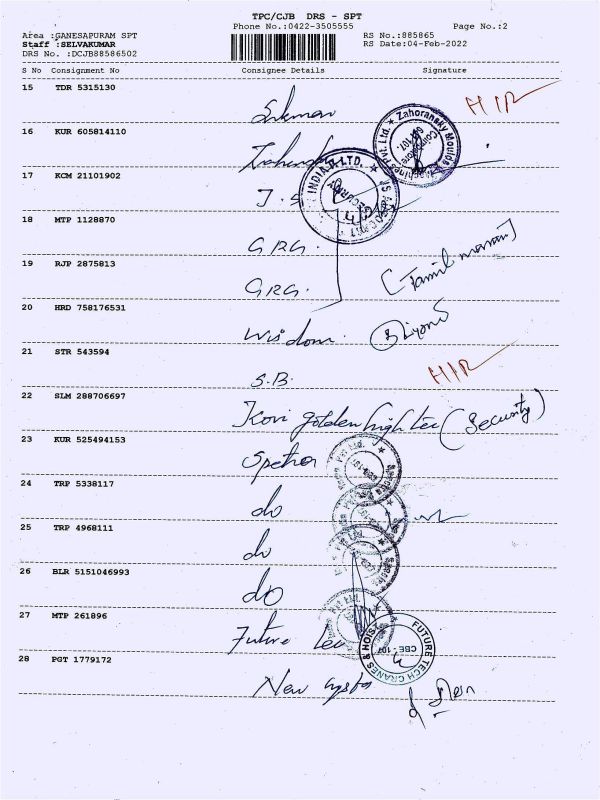 TPC/CJB DRS - SPT
Phone No.:0422-3505555 Page No.:2
Area :GANESAPURAM SPT RS No.:885865
Staff :SELVAKUMAR RS Date:04-Feb-2022
DRS No. :DCJB88586502
S No Consignment No Consignee Details Signature
15 TDR 5315130
HIR
16 KUR 605814110
Zahoransky Moulds Machines Pvt. Ltd.
17 KCM 21101902
INDIA P LTD.
SECURITY
18 MTP 1128870
GRG.
19 RJP 2875813
GRG. [Tamil maran]
20 HRD 758176531
Wisdom.
21 STR 543594
S.B. HIR
22 SLM 288706697
Kovi golden high tec (Security)
23 KUR 525494153
Spectra
24 TRP 5338117
do
25 TRP 4968111
do
26 BLR 5151046993
do
27 MTP 261896
Future tec
FUTURE TECH CRANES & HOIS
CBE - 107
28 PGT 1779172
New